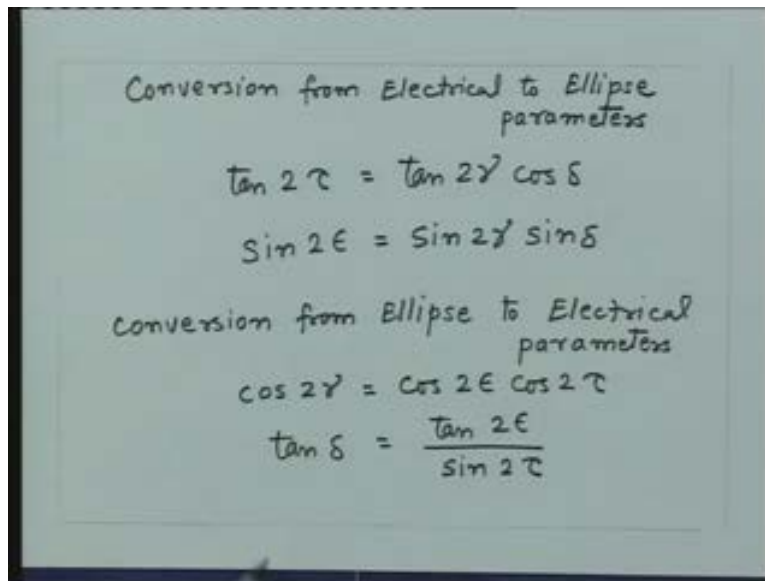 Conversion from Electrical to Ellipse
parameters
tan 2 τ = tan 2γ cos δ
Sin 2 ϵ = Sin 2γ sin δ
conversion from Ellipse to Electrical
parameters
cos 2γ = cos 2ϵ cos 2 τ
tan δ = tan 2ϵ / sin 2 τ